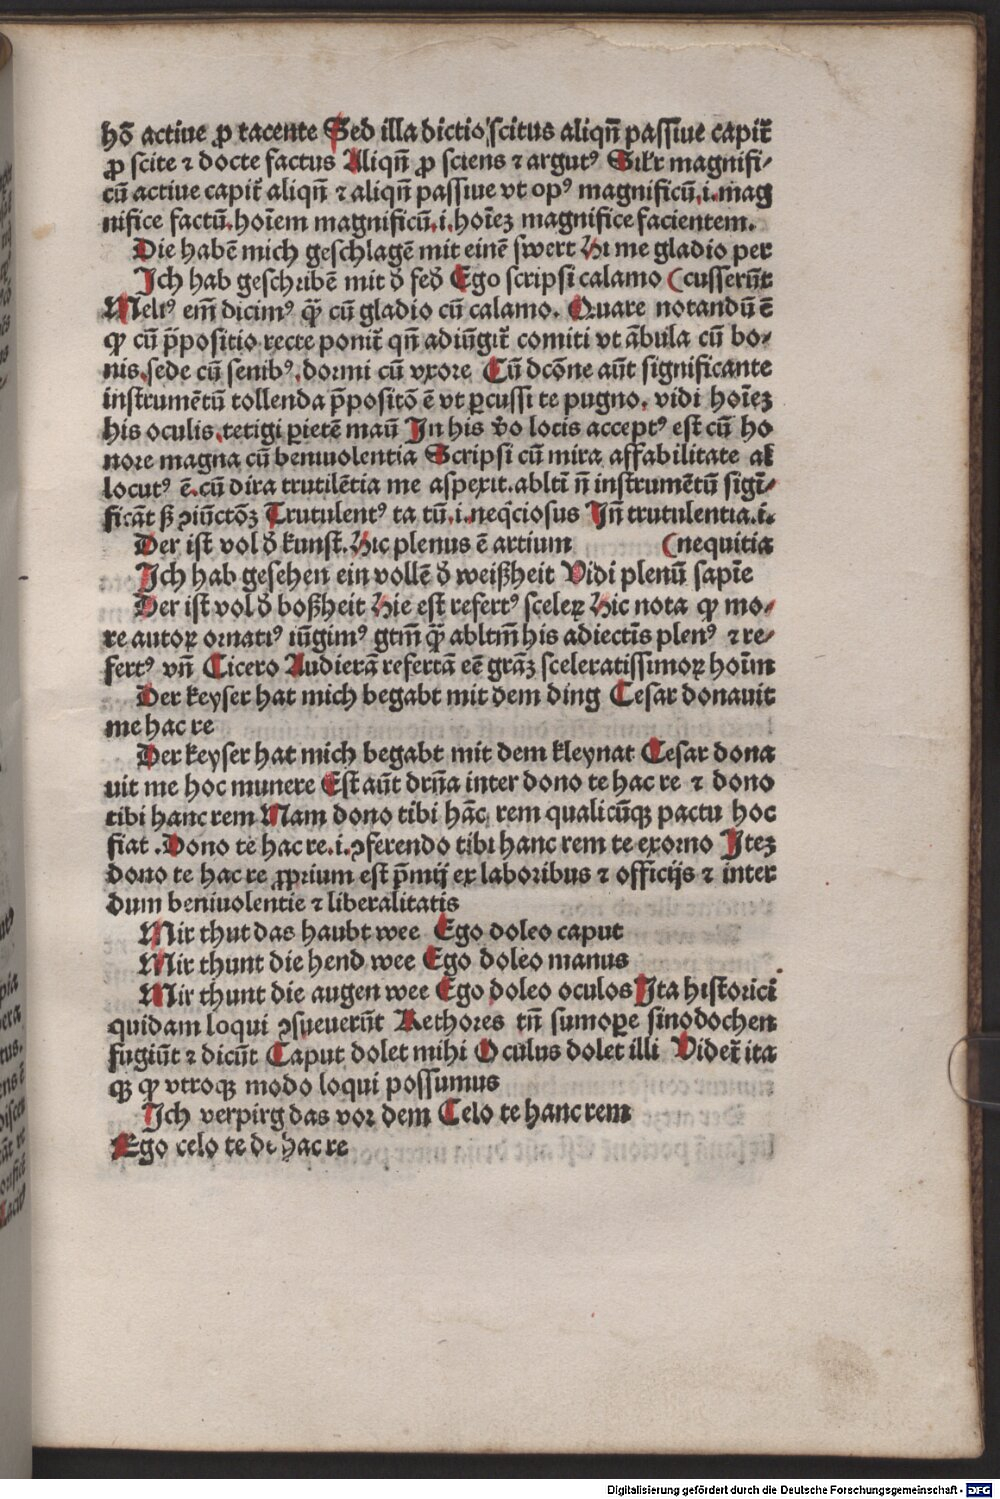 hō actiue ꝓ tacente Sed illa dictio scitus aliqn̄ passiue capit᷑
ꝓ scite ⁊ docte factus Aliqn̄ ꝓ sciens ⁊ argutꝰ Sil'r magnifi⸗
cū actiue capit᷑ aliqn̄ ⁊ aliqn̄ passiue vt opꝰ magnificū.i.mag
nifice factū.hoīem magnificū.i.hoīeꝫ magnifice facientem.
Die habē mich geschlagē mit einē swert Hi me gladio per
Ich hab geschribē mit d̄ fed̄ Ego scripsi calamo (cusserūt
Meliꝰ em̄ dicimꝰ qͣꝫ cū gladio cū calamo. Quare notandū ē
ꝙ cū p̄positio recte ponit᷑ qn̄ adiūgit᷑ comiti vt ābula cū bo⸗
nis.sede cū senibꝰ.dormi cū vxore Cū dcōne aūt significante
instrumētū tollenda p̄positō ē vt ꝑcussi te pugno. vidi hoīeꝫ
his oculis.tetigi ꝑietē manū In his v̄o locis acceptꝰ est cū ho
nore magna cū beniuolentia Scripsi cū mira affabilitate al
locutꝰ ē.cū dira trutilētia me aspexit.abltī n̄ instrumētū sigī⸗
ficāt sꝫ ꝯiūctōꝫ Trutulentꝰ ta tū.i.neq̄ciosus In̄ trutulentia.i.
Der ist vol d̄ kunst.Hic plenus ē artium (nequitia
Ich hab gesehen ein vollē d̄ weißheit Vidi plenū sapīe
Der ist vol d̄ boßheit Hie est refertꝰ sceleꝝ Hic nota ꝙ mo⸗
re autoꝝ ornatiꝰ iūgimꝰ gtm̄ qͣꝫ abltm̄ his adiectīs plenꝰ ⁊ re⸗
fertꝰ vn̄ Cicero Audierā refertā eē grāꝫ sceleratissimoꝝ hoīm
Der keyser hat mich begabt mit dem ding Cesar donauit
me hac re
Der keyser hat mich begabt mit dem kleynat Cesar dona
uit me hoc munere Est aūt drn̄a inter dono te hac re ⁊ dono
tibi hanc rem Nam dono tibi hāc rem qualicūqꝫ pactu hoc
fiat .Dono te hac re.i.ꝯferendo tibi hanc rem te exorno Iteꝫ
dono te hac re ꝓprium est p̄mij ex laboribus ⁊ officijs ⁊ inter
dum beniuolentie ⁊ liberalitatis
Mir thut das haubt wee Ego doleo caput
Mir thunt die hend wee Ego doleo manus
Mir thunt die augen wee Ego doleo oculos Ita historici
quidam loqui ꝯsueuerūt Rethores tn̄ sumoꝑe sinodochen
fugiūt ⁊ dicūt Caput dolet mihi Oculus dolet illi Videt᷑ ita
qꝫ ꝙ vtroqꝫ modo loqui possumus
Ich verpirg das vor dem Celo te hanc rem
Ego celo te de hac re
Digitalisierung gefördert durch die Deutsche Forschungsgemeinschaft - DFG